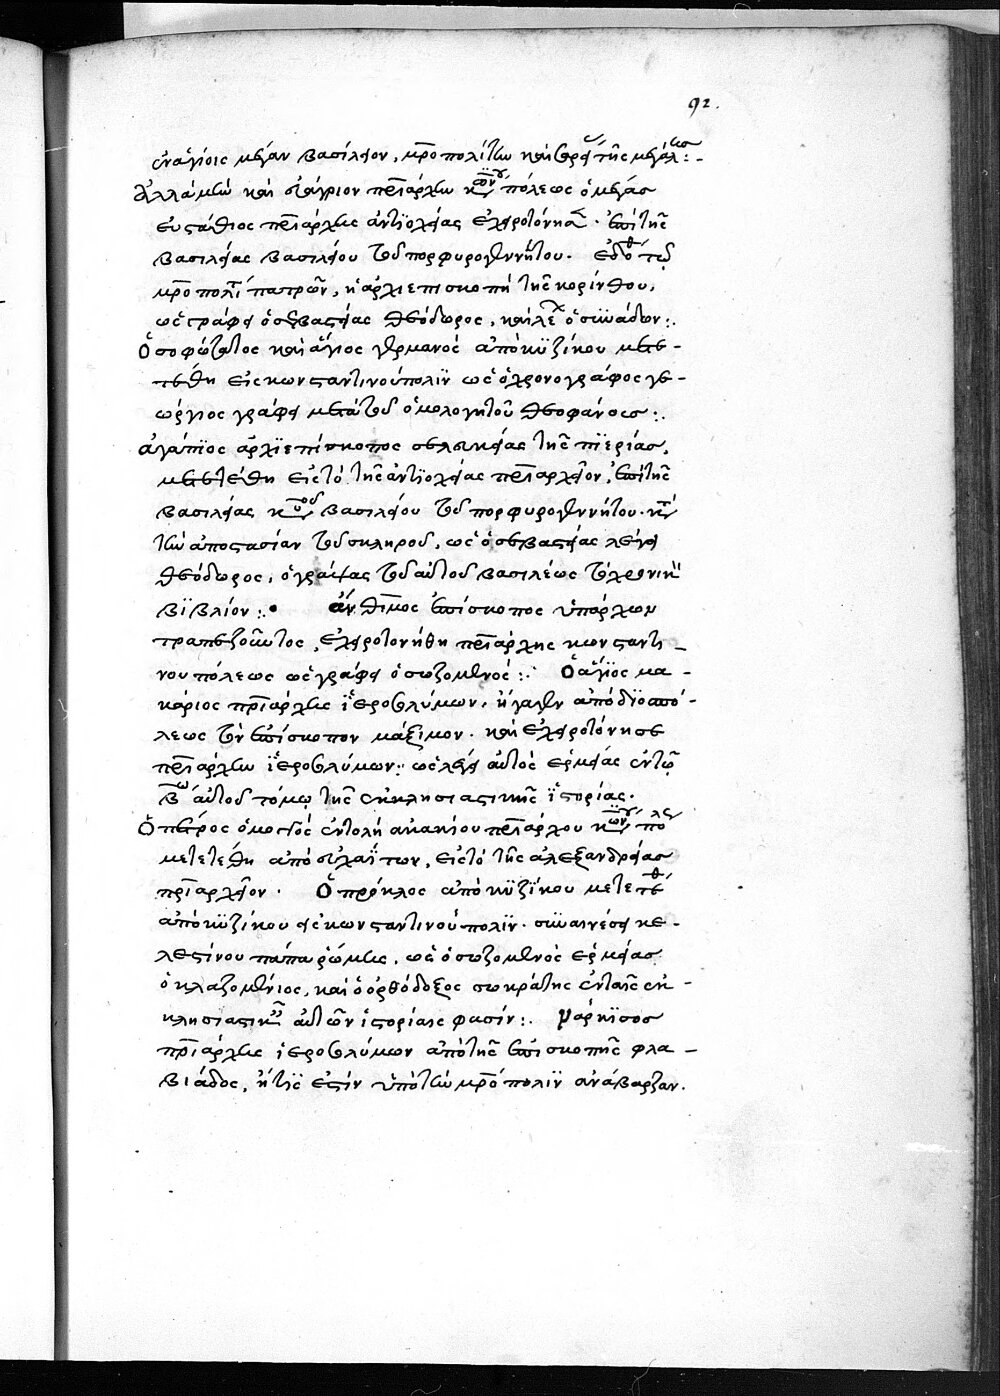 92.
ἐν ἁγίοις μέγαν βασίλειον, μρο πολίτην καισαρείας τῆς μεγάλης:-
Ἀλλὰ μὴν καὶ σισίνιον πριάρχην κων πόλεως ὁ μέγας
εὐστάθιος πριάρχης ἀντιοχείας ἐχειροτόνησε. ἐπὶ τῆς
βασιλείας βασιλείου τοῦ πορφυρογεννήτου. ἐδόθη τῷ
μρο πολίτῃ πατρῶν, ἡ ἀρχιεπισκοπὴ τῆς κορίνθου,
ὡς γράφει ὁ σεβαστείας θεόδωρος, καὶ λέχ ὁ συνάδων:.
Ὁ σοφώτατος καὶ ἅγιος γερμανὸς ἀπὸ κυζίκου μετε-
τέθη εἰς κωνσταντινούπολιν ὡς ὁ χρονογράφος γε-
ώργιος γράφει μετὰ τοῦ ὁμολογητοῦ θεοφάνους:.
ἀγάπιος ἀρχιεπίσκοπος σελευκείας τῆς πιερίας,
μετετέθη εἰς τὸ τῆς ἀντιοχείας πριαρχεῖον, ἐπὶ τῆς
βασιλείας κυροῦ βασιλείου τοῦ πορφυρογεννήτου. κατὰ
τὴν ἀποστασίαν τοῦ σκληροῦ, ὡς ὁ σεβαστείας λέγει
θεόδωρος, ὁ γράψας τοῦ αὐτοῦ βασιλέως τὸ χρονικὸν
βιβλίον:. ἄνθιμος ἐπίσκοπος ὑπάρχων
τραπεζοῦντος, ἐχειροτονήθη πριάρχης κωνσταντι-
νουπόλεως ὡς γράφει ὁ σωζομενός:. Ὁ ἅγιος μα-
κάριος πριάρχης ἱεροσολύμων, ἤγαγεν ἀπὸ διοσπό-
λεως τὸν ἐπίσκοπον μάξιμον. καὶ ἐχειροτόνησε
πριάρχην ἱεροσολύμων: ὡς λέγει αὐτὸς ἑρμείας ἐν τῷ
βω αὐτοῦ τόμῳ τῆς ἐκκλησιαστικῆς ἱστορίας.
Ὁ πέτρος ὁ μογγὸς ἐντολῇ ἀκακίου πριάρχου κων πόλεως
μετετέθη ἀπὸ εὐχαΐτων, εἰς τὸ τῆς ἀλεξανδρείας
πριαρχεῖον. Ὁ πρόκλος ἀπὸ κυζίκου μετετέθ
ἀπὸ κυζίκου εἰς κωνσταντινούπολιν. συναινέσει κε-
λεστίνου πάπα ῥώμης, ὡς ὁ σωζομενὸς ἑρμείας
ὁ κλαζομένιος, καὶ ὁ ὀρθόδοξος σωκράτης ἐν ταῖς ἐκ-
κλησιαστικαῖς αὐτῶν ἱστορίαις φασίν:. Νάρκισος
πριάρχης ἱεροσολύμων ἀπὸ τῆς ἐπισκοπῆς φλα-
βιάδος, ἥτις ἐστὶν ὑπὸ τὴν μρο πολιν ἀνάβαρζαν.